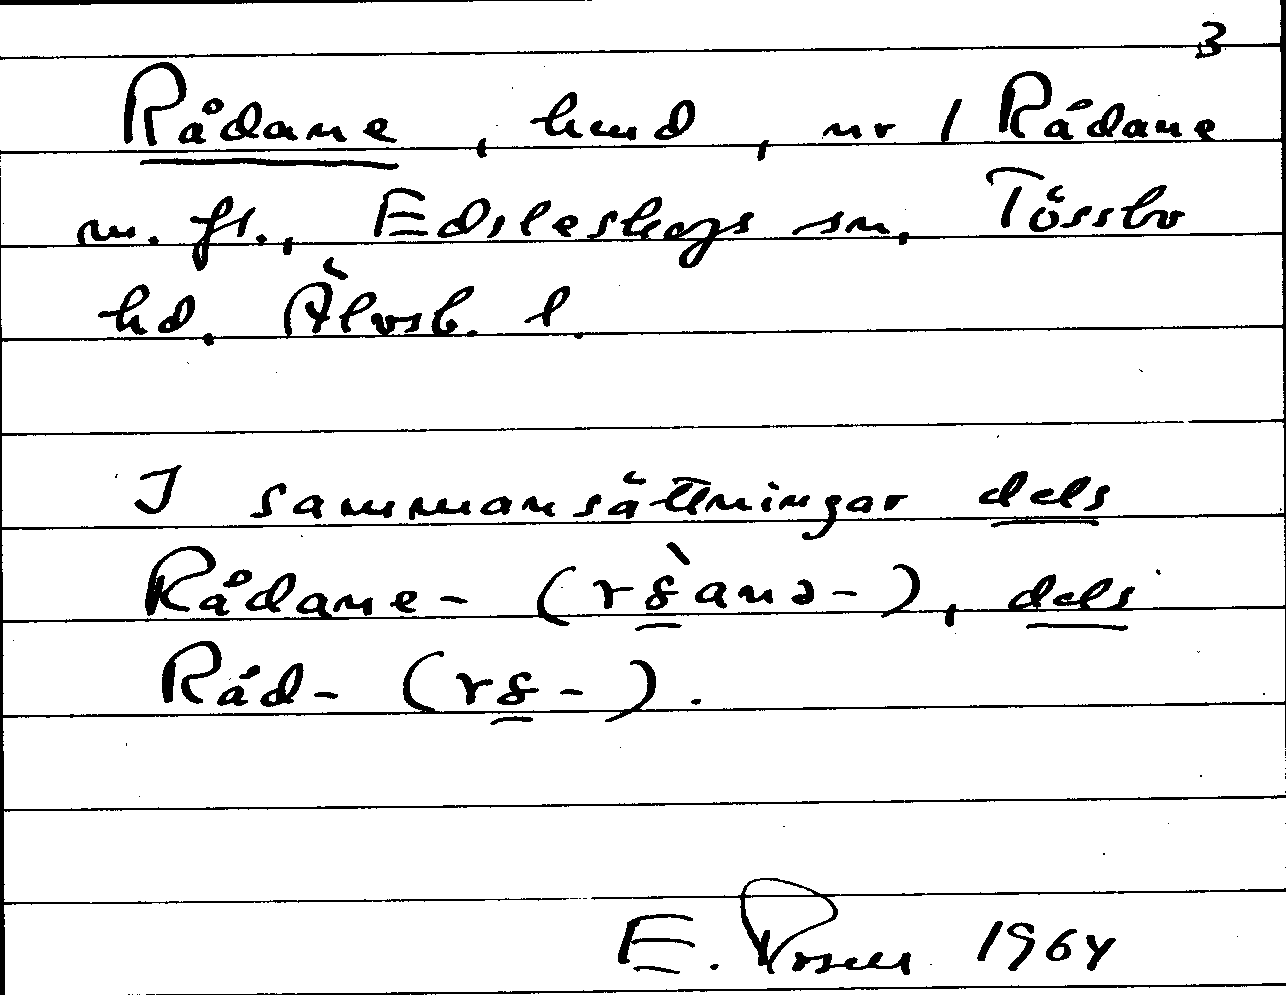 3
Rådane, hmd, nr 1 Rådane
m. fl., Edsleskogs sn, Tössbo
hd. Älvsb. l.
I sammansättningar dels
Rådane- (rs̱̀anə-), dels
Råd- (rs̱-).
E. 1964